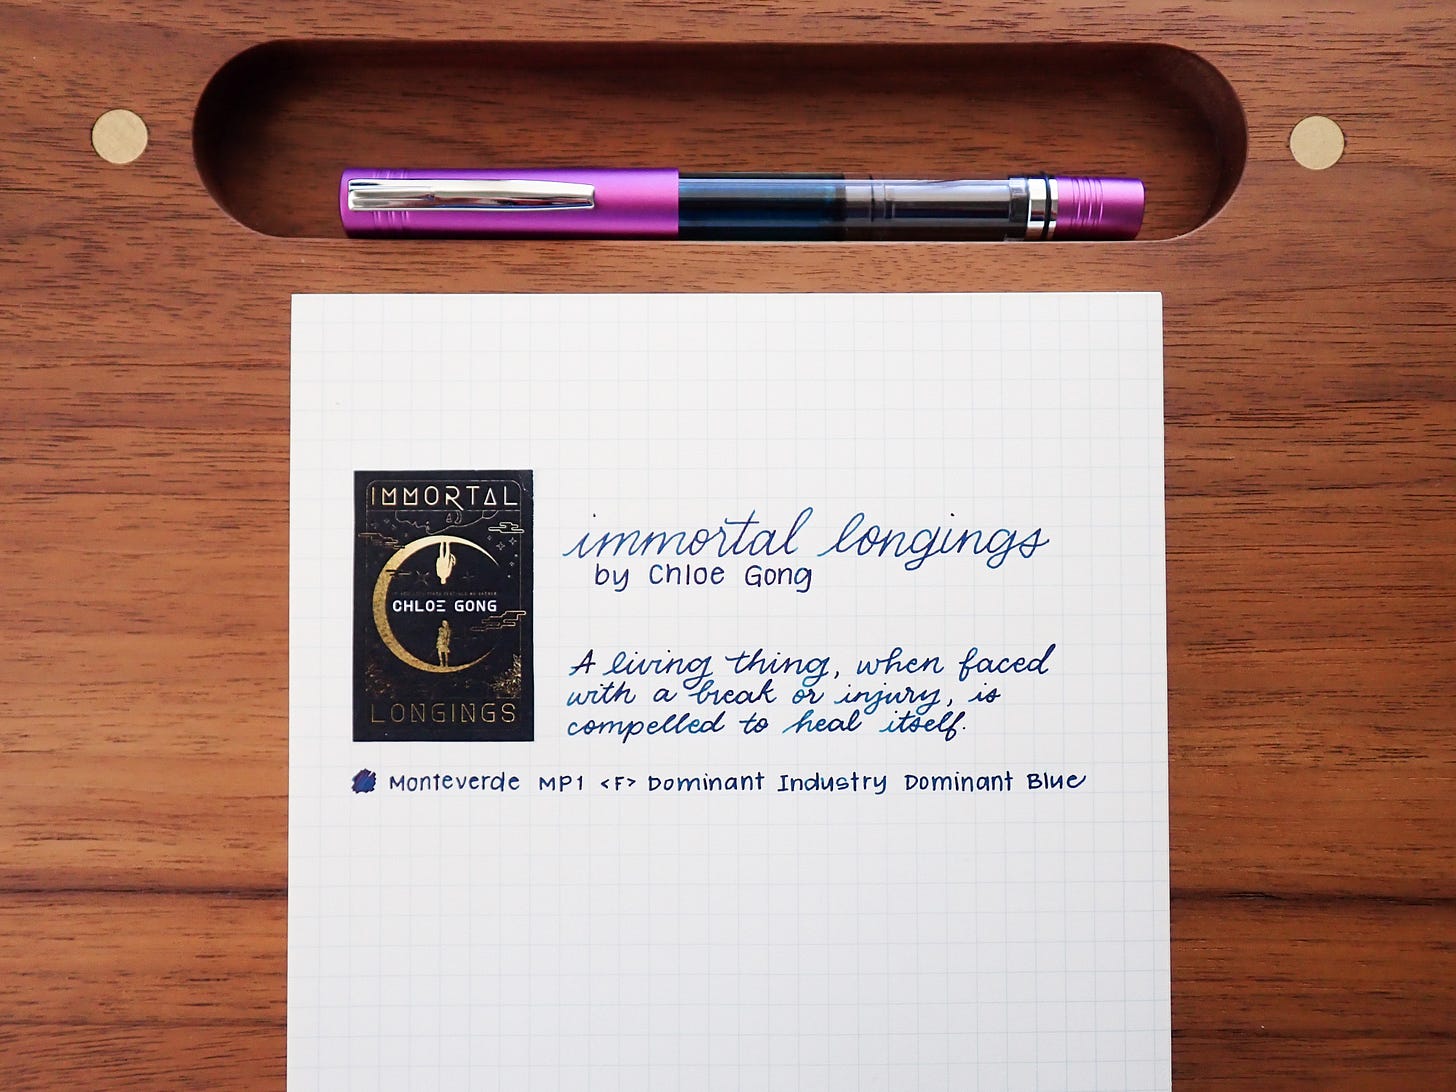 IMMORTAL
CHLOE GONG
LONGINGS
immortal longings
by Chloe Gong
A living thing, when faced
with a break or injury, is
compelled to heal itself.
Monteverde MP1 <F> Dominant Industry Dominant Blue